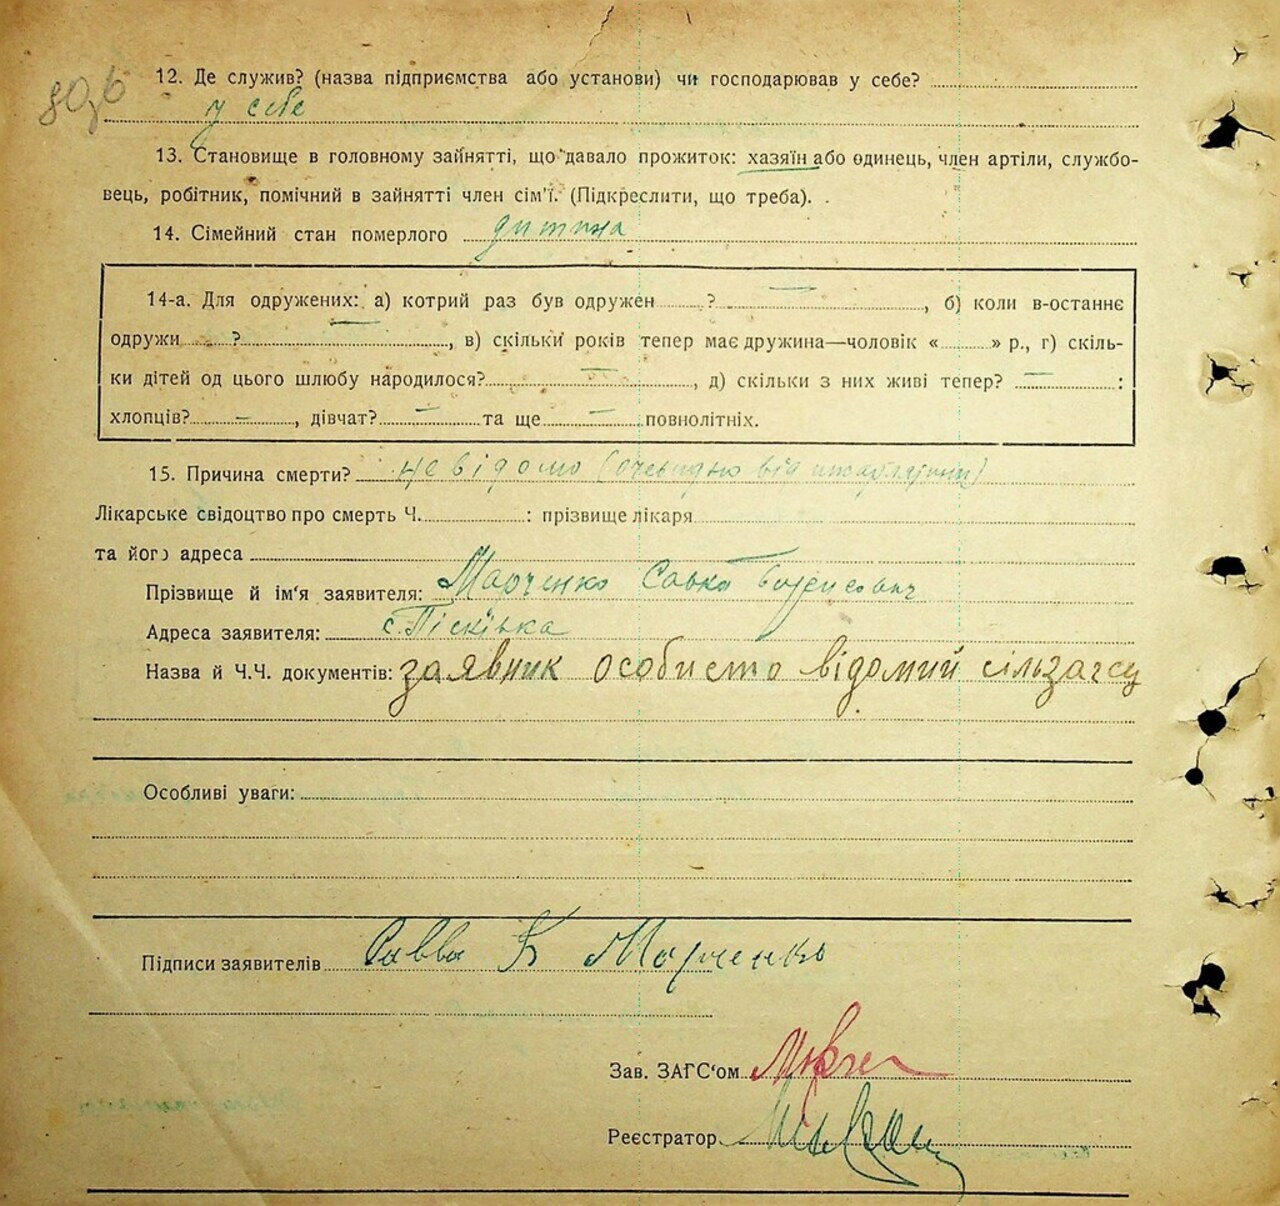 12. Де служив? (назва підприємства або установи) чи господарював у себе?
у себе
13. Становище в головному зайнятті, що давало прожиток: хазяїн або одинець, член артілі, службо-
вець, робітник, помічний в зайнятті член сім'ї. (Підкреслити, що треба).
14. Сімейний стан померлого дитина
14-а. Для одружених: а) котрий раз був одружен ? , б) коли в-останнє
одружи ? , в) скільки років тепер має дружина—чоловік « » р., г) скіль-
ки дітей од цього шлюбу народилося? — , д) скільки з них живі тепер? — :
хлопців? — , дівчат? — та ще — повнолітніх.
15. Причина смерти? не відомо (очевидно від
Лікарське свідоцтво про смерть Ч. : прізвище лікаря
та його адреса
Прізвище й ім'я заявителя: Марченко Савка Борисович
Адреса заявителя: с. Пісківка
Назва й Ч.Ч. документів: заявник особисто відомий сільзагсу
Особливі уваги:
Підписи заявителів Савва Б Марченко
Зав. ЗАГС'ом
Реєстратор